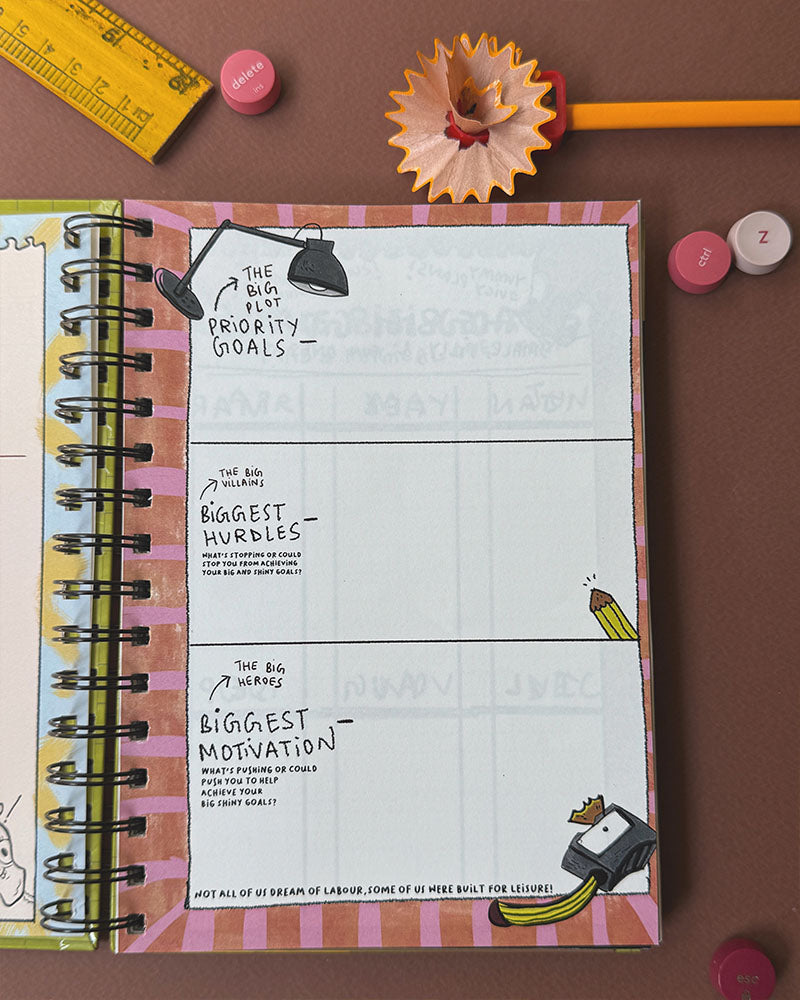 delete
ins
ctrl
Z
THE
BIG
PLOT
PRIORITY
GOALS –
THE BIG
VILLAINS
BIGGEST –
HURDLES
WHAT'S STOPPING OR COULD
STOP YOU FROM ACHIEVING
YOUR BIG AND SHINY GOALS?
THE BIG
HEROES
BIGGEST –
MOTIVATION
WHAT'S PUSHING OR COULD
PUSH YOU TO HELP
ACHIEVE YOUR
BIG SHINY GOALS?
NOT ALL OF US DREAM OF LABOUR, SOME OF US WERE BUILT FOR LEISURE!
esc